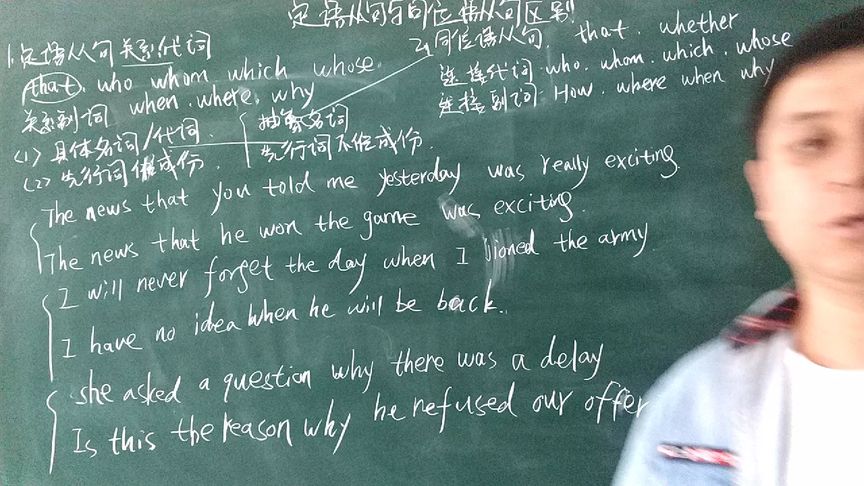 定语从句与同位语从句区别
1. 定语从句 关系代词
that. who whom which whose.
关系副词 when. where. why
2. 同位语从句. that. whether
连接代词: who. whom. which. whose
连接副词: How. where when why
(1) 具体名词/代词.
(2) 先行词做成份.
抽象名词
先行词不做成份.
The news that you told me yesterday was really exciting.
The news that he won the game was exciting.
I will never forget the day when I jioned the army
I have no idea when he will be back.
she asked a question why there was a delay
Is this the reason why he refused our offer